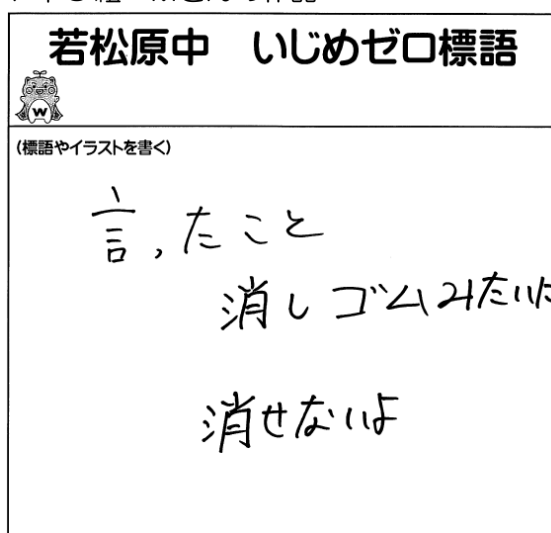 若松原中 いじめゼロ標語
W
(標語やイラストを書く)
言ったこと
消しゴムみたいに
消せないよ